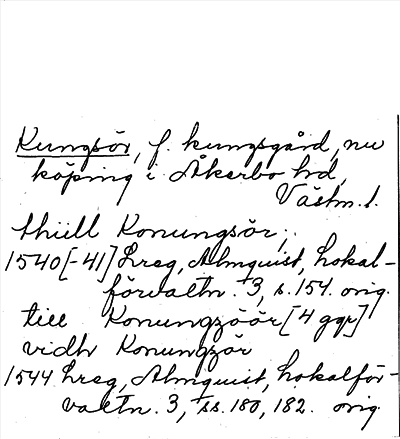 Kungsör, f. kungsgård, nu
köping i Åkerbo hd,
Västm. l.
thiill Konungsör,
1540[-41] Lreg, Almquist, Lokal-
förvaltn. 3, s. 154. orig.
till Konungzöör [4 ggr]
vidh Konungzör
1544 Lreg, Almquist, Lokalför-
valtn. 3, ss. 180, 182. orig.